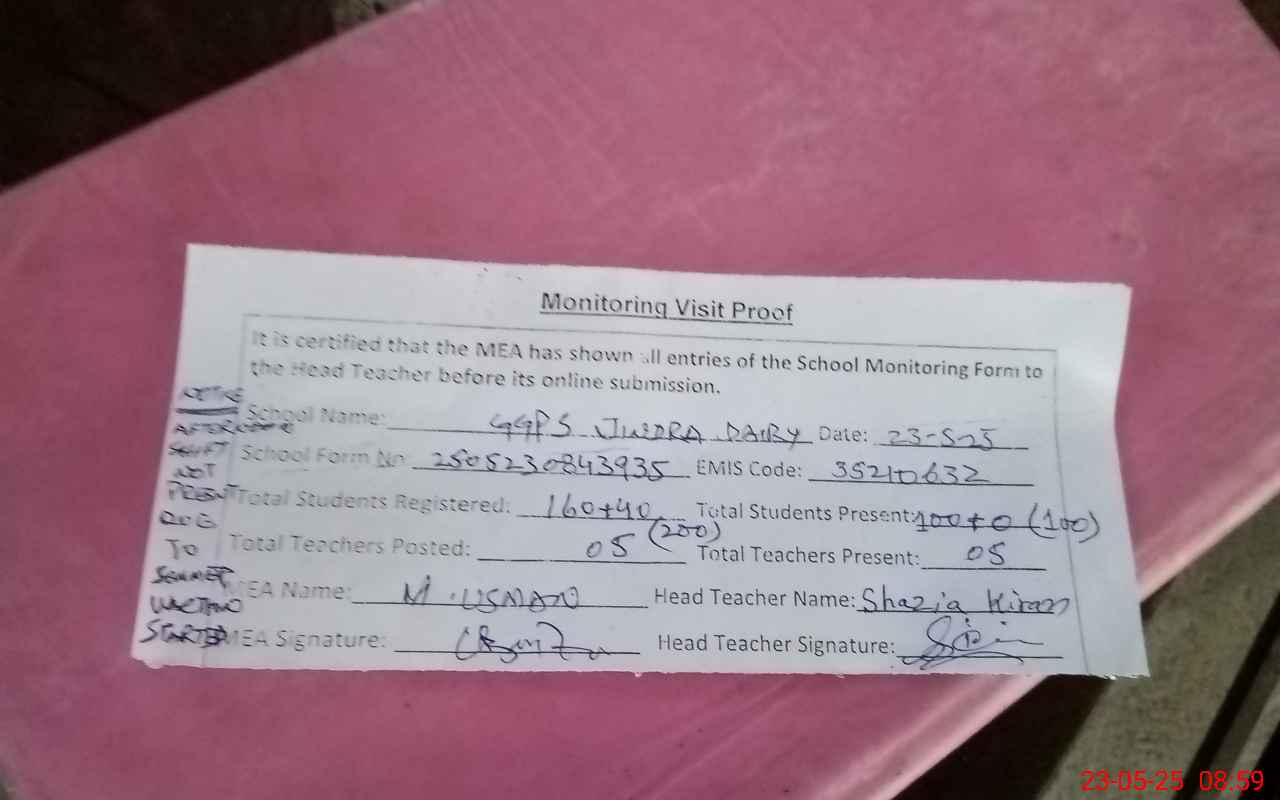 Monitoring Visit Proof
It is certified that the MEA has shown all entries of the School Monitoring Form to
the Head Teacher before its online submission.
School Name: GGPS JINDRA DAIRY Date: 23-5-25
School Form No 2505230843935 EMIS Code: 35210632
Total Students Registered: 160+40 (200) Total Students Present: 100+0 (100)
Total Teachers Posted: 05 Total Teachers Present: 05
MEA Name: M.USMAN Head Teacher Name: Shazia Kiran
MEA Signature: Head Teacher Signature:
NOTE
AFTERNOON
SHIFT
NOT
PRESENT
DUE
TO
SUMMER
STARTED
23-05-25 08:59